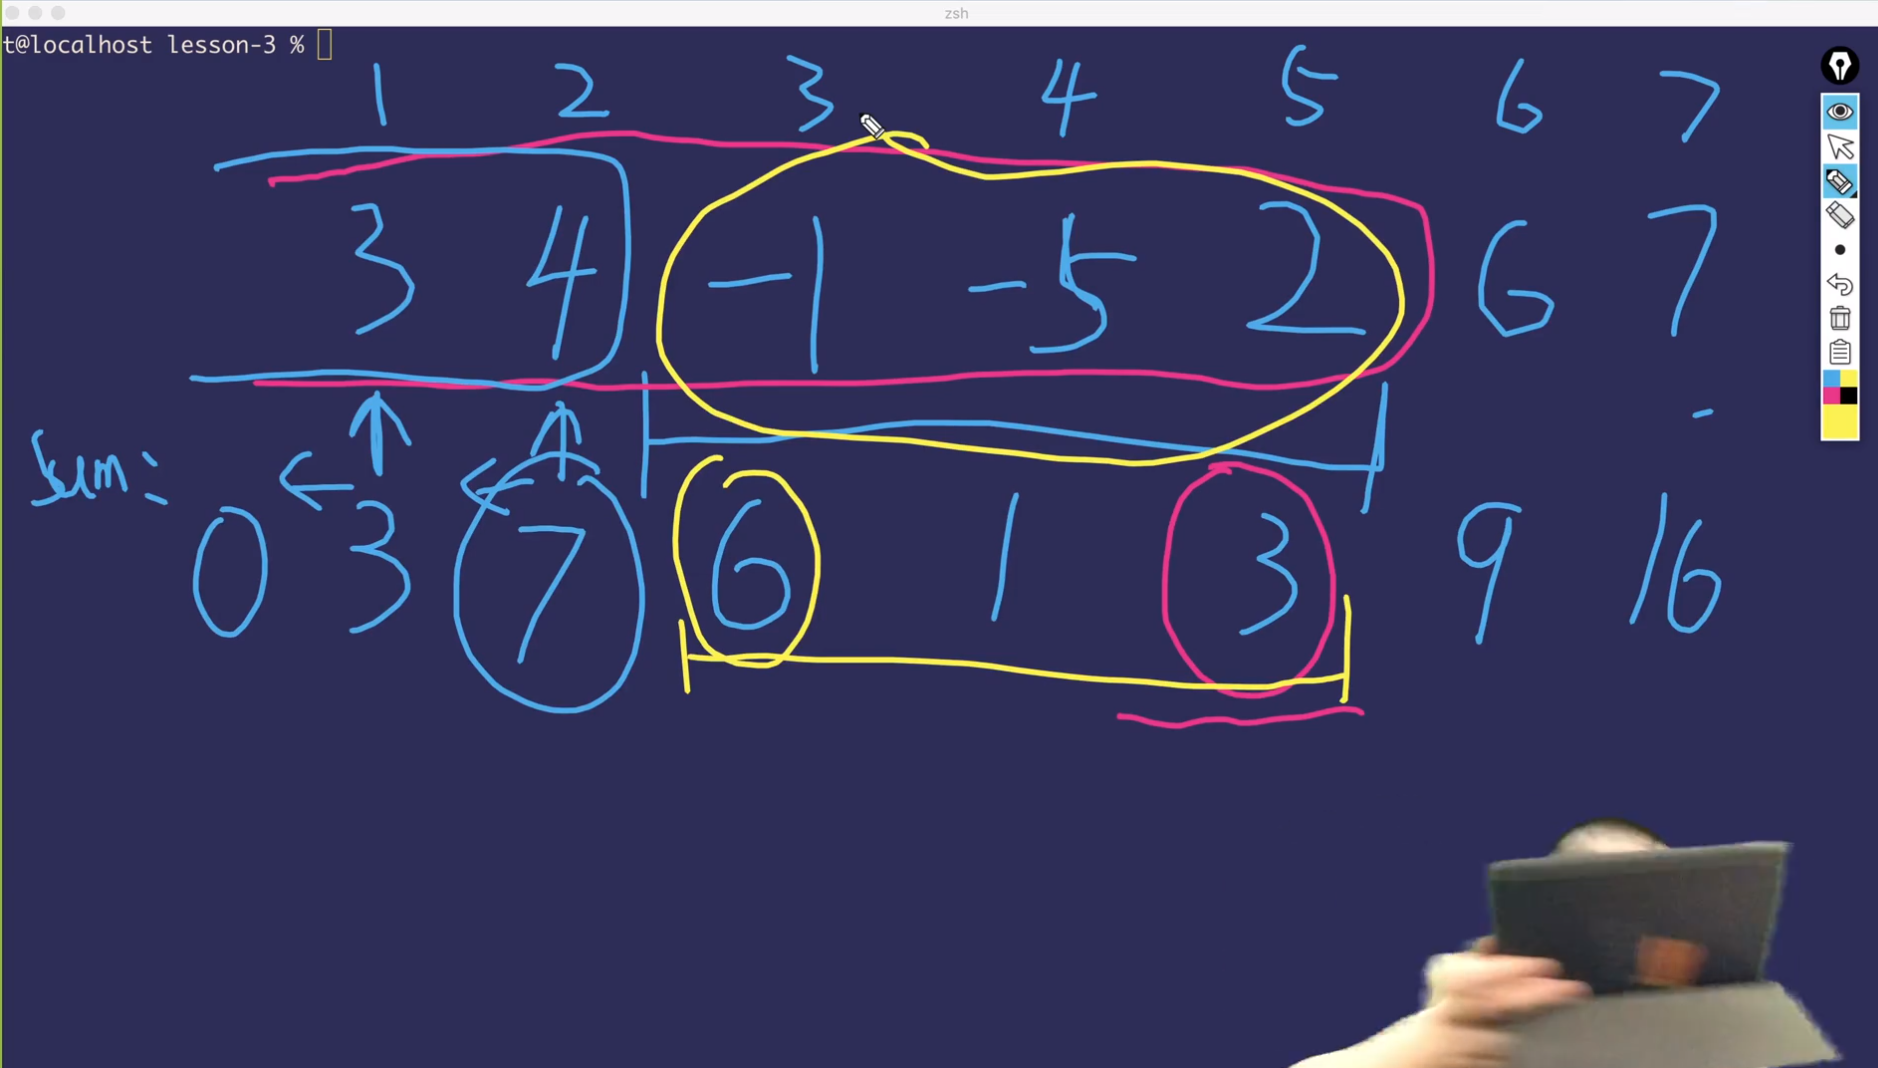 zsh
t@localhost lesson-3 %
1 2 3 4 5 6 7
3 4 -1 -5 2 6 7
sum:
0 3 7 6 1 3 9 16